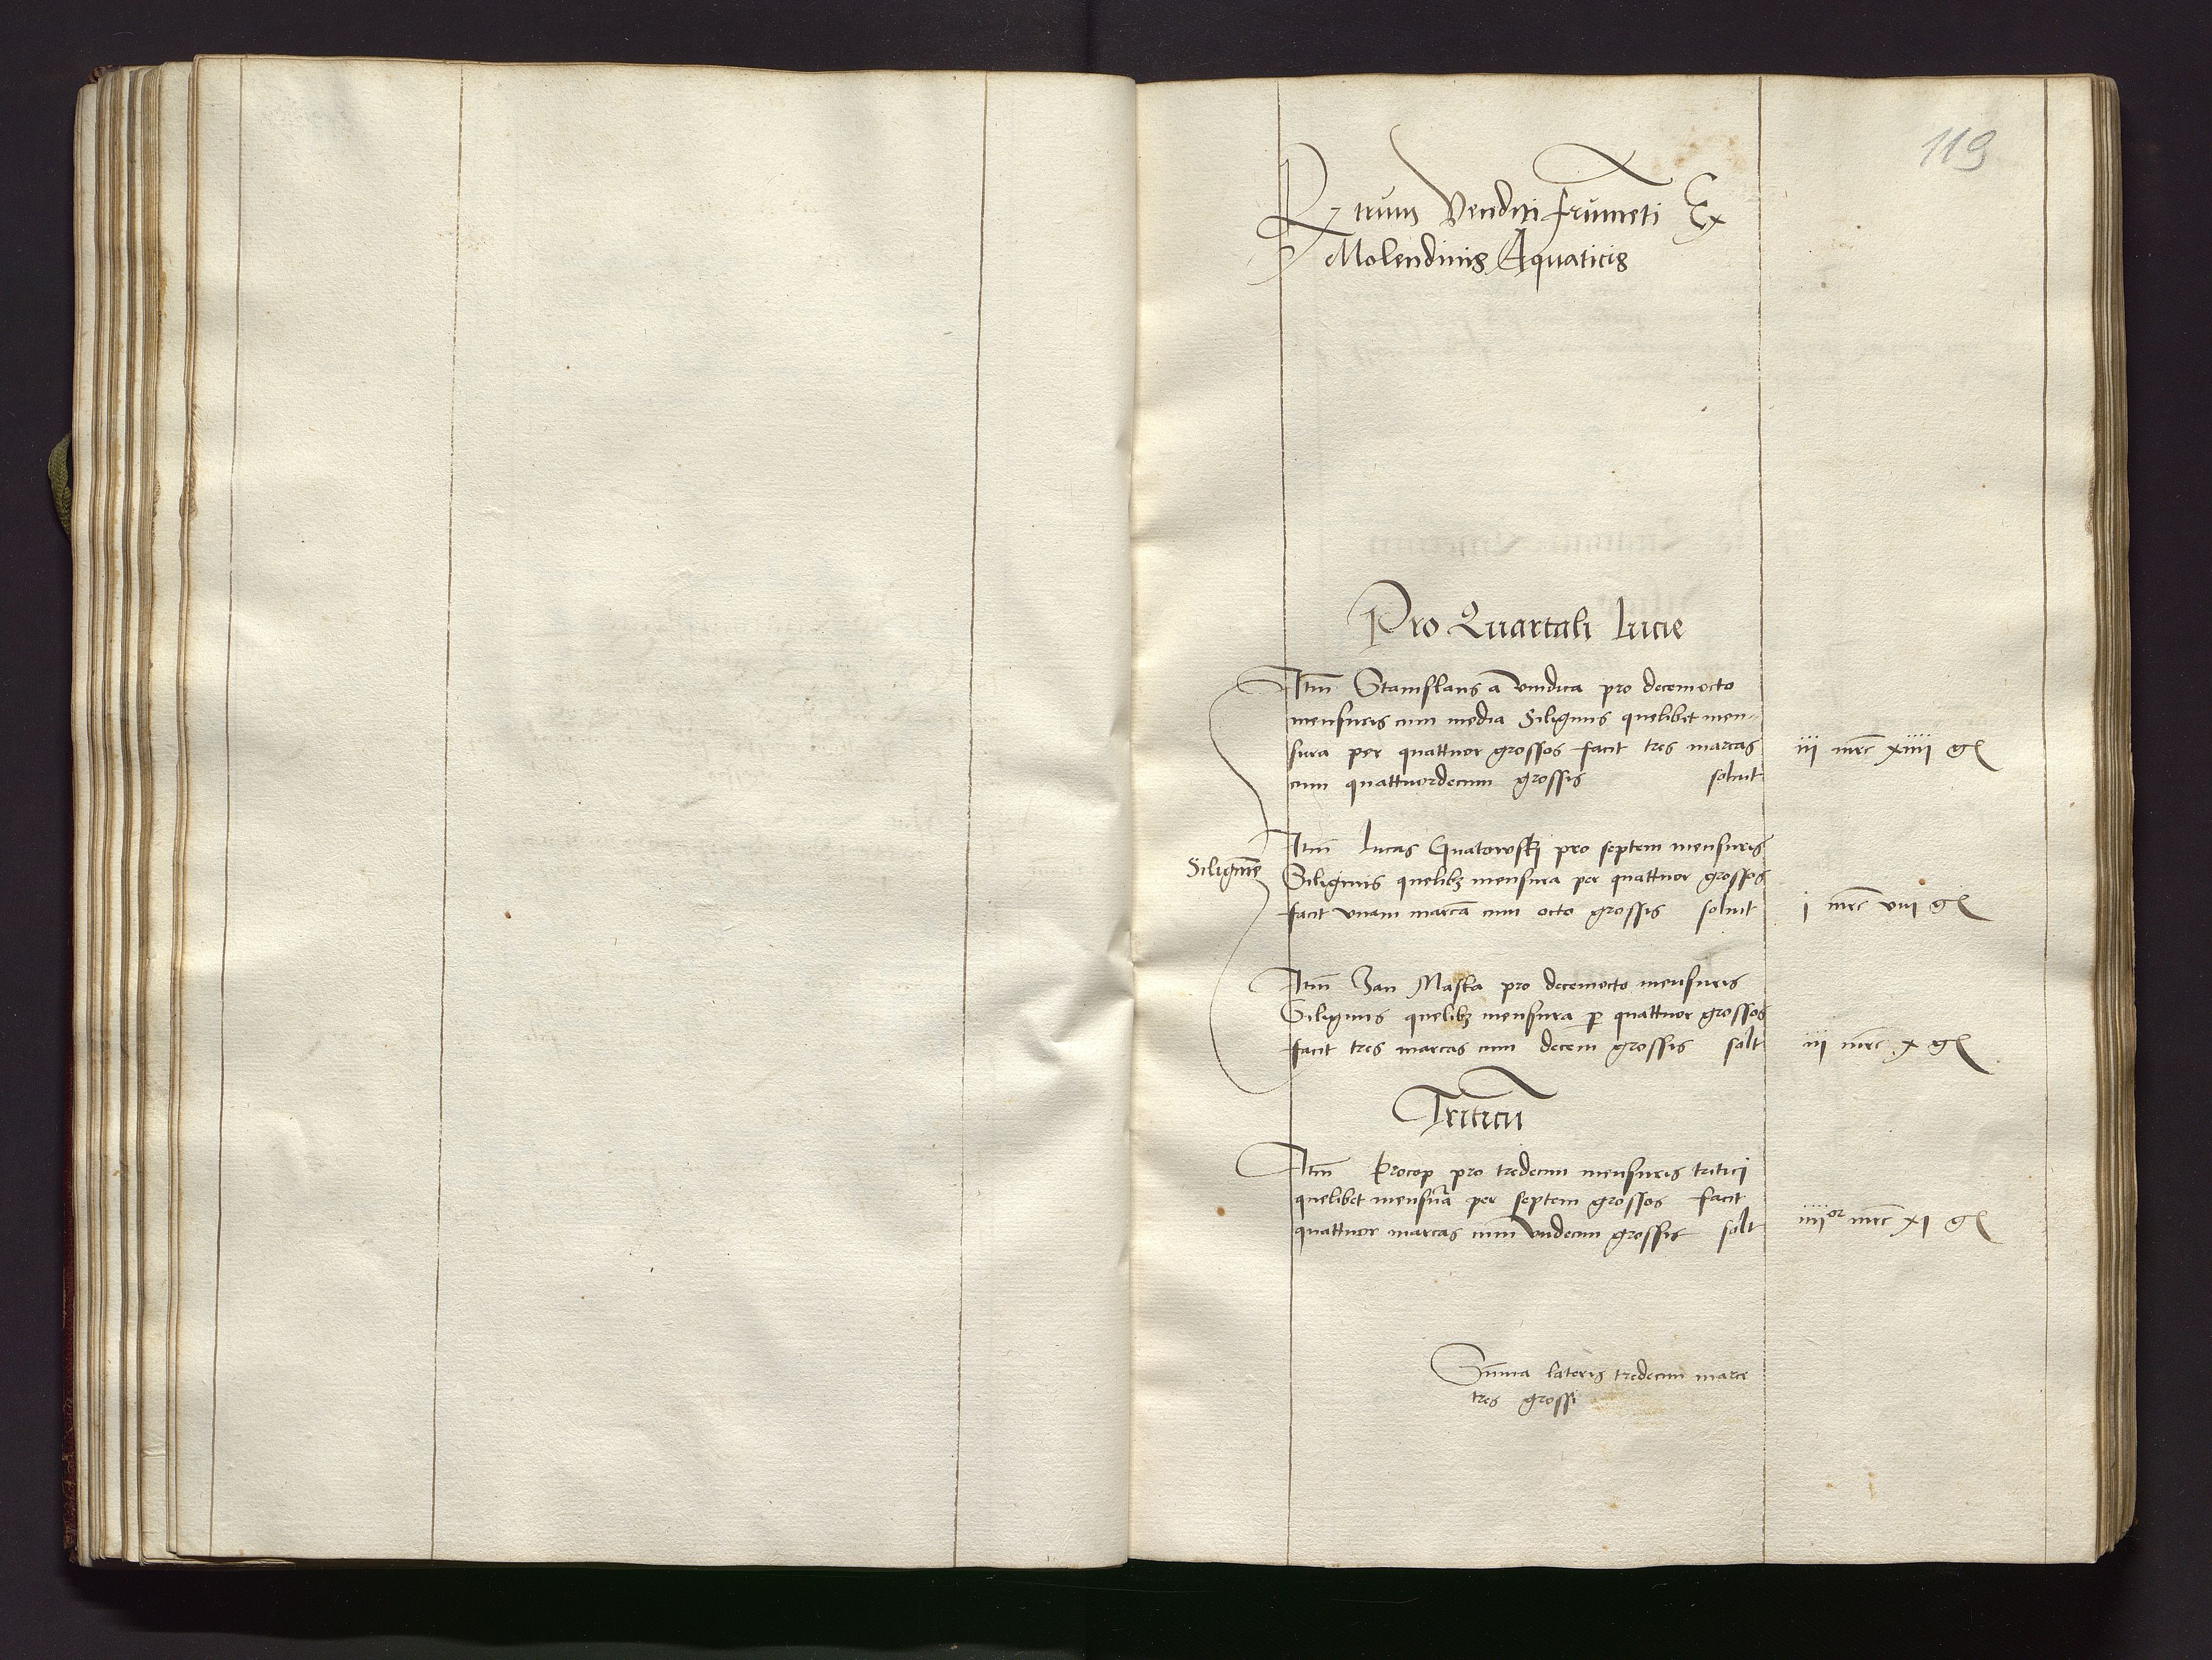 119
Rtrum Venditi frumeti Ex
Molendinis Aquaticis
Pro Quartali lucie
Itm Stanislaus a vindica pro decemocto
mensuris cum media Siliginis quelibet men-
sura per quattuor grossos facit tres marcas
cum quattuordecim grossis soluit
iii mrc xiiii g
Siligine
Itm lucas Gnatowskj pro septem mensuris
Siliginis quelibz mensura per quattuor grossos
facit vnam marca cum octo grossis soluit
i mrc viii g
Itm Jan Maska pro decemocto mensuris
Siliginis quelibz mensura p quattuor grossos
facit tres marcas cum decem grossis solt
iii mrc x g
Triticu
Itm procop pro tredecim mensuris tritici
quelibet mensura per septem grossos facit
quattuor marcas cum vndecim grossis solt
iiii or mrc xi g
Suma lateris tredecim marce
tres grossi